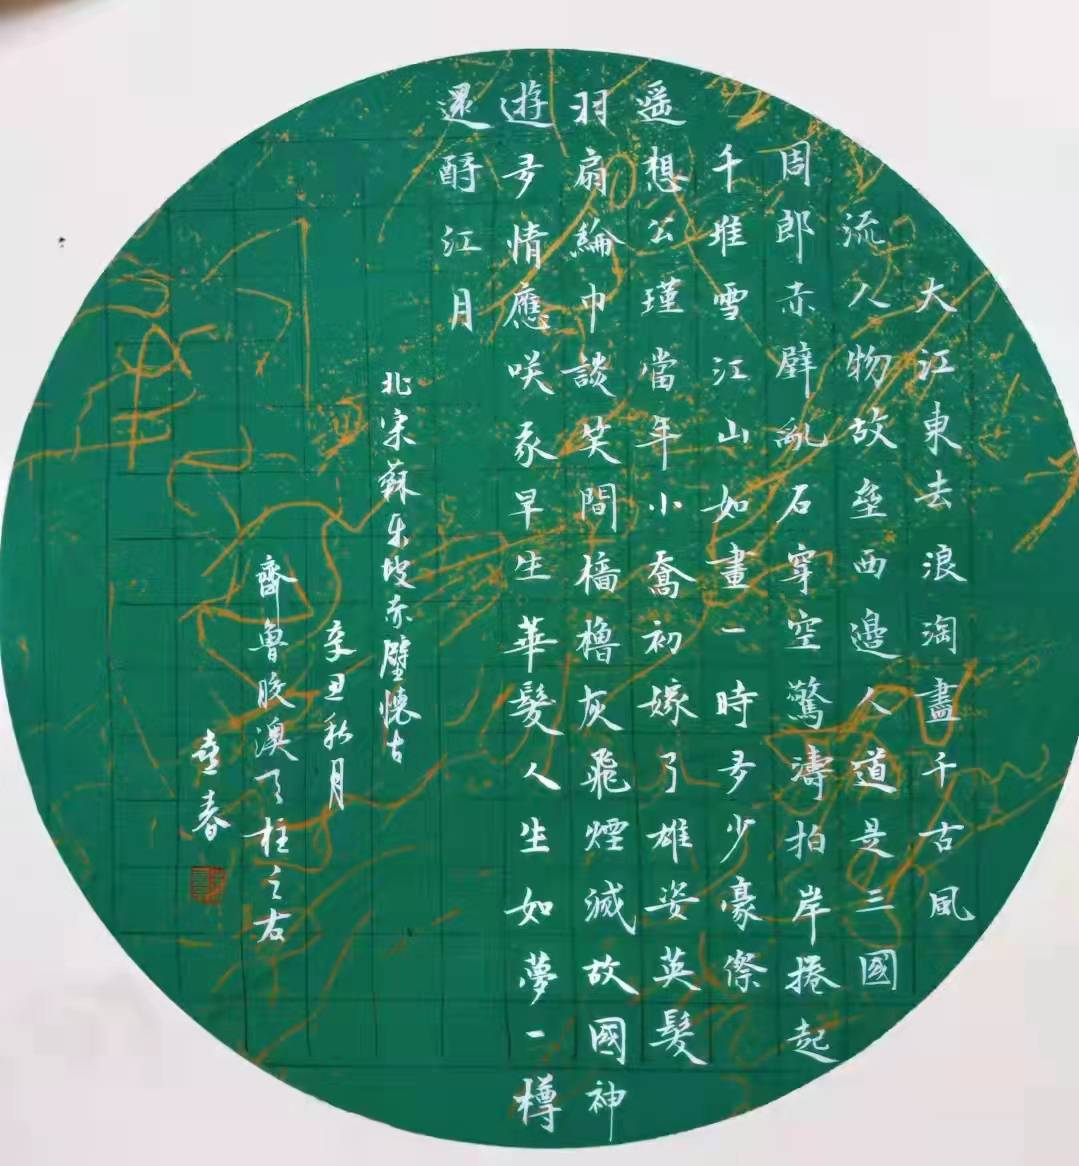 大江東去浪淘盡千古風
流人物故垒西邊人道是三國
周郎赤壁亂石穿空驚濤拍岸捲起
千堆雪江山如畫一時多少豪傑
遥想公瑾當年小喬初嫁了雄姿英髮
羽扇綸巾談笑間檣櫓灰飛煙滅故國神
遊多情應咲我早生華髮人生如夢一樽
還酹江月
北宋蘇东坡赤壁懷古
辛丑秋月
齊魯胶澳天柱之右
春